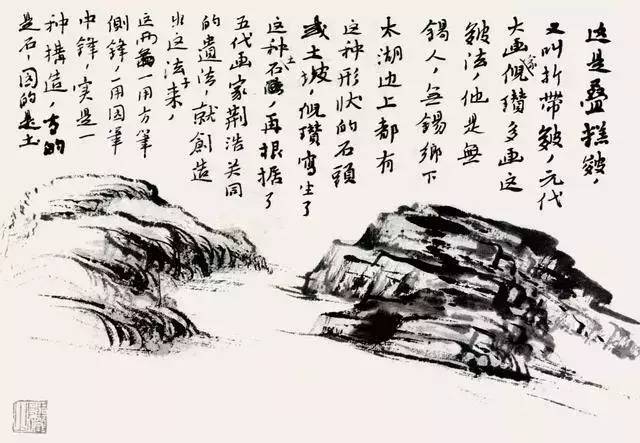 这是叠糕皴，
又叫折带皴，元代
大画家倪瓚多画这
皴法，他是無
錫人，無錫鄉下
太湖边上都有
这种形状的石頭
或土坡，倪瓚寫生了
这种石土，再根据了
五代画家荆浩关同
的遺法，就創造
出这法子来，
这两用方筆
侧鋒，一用圆筆
中鋒，实是一
种構造，方的
是石，圆的是土